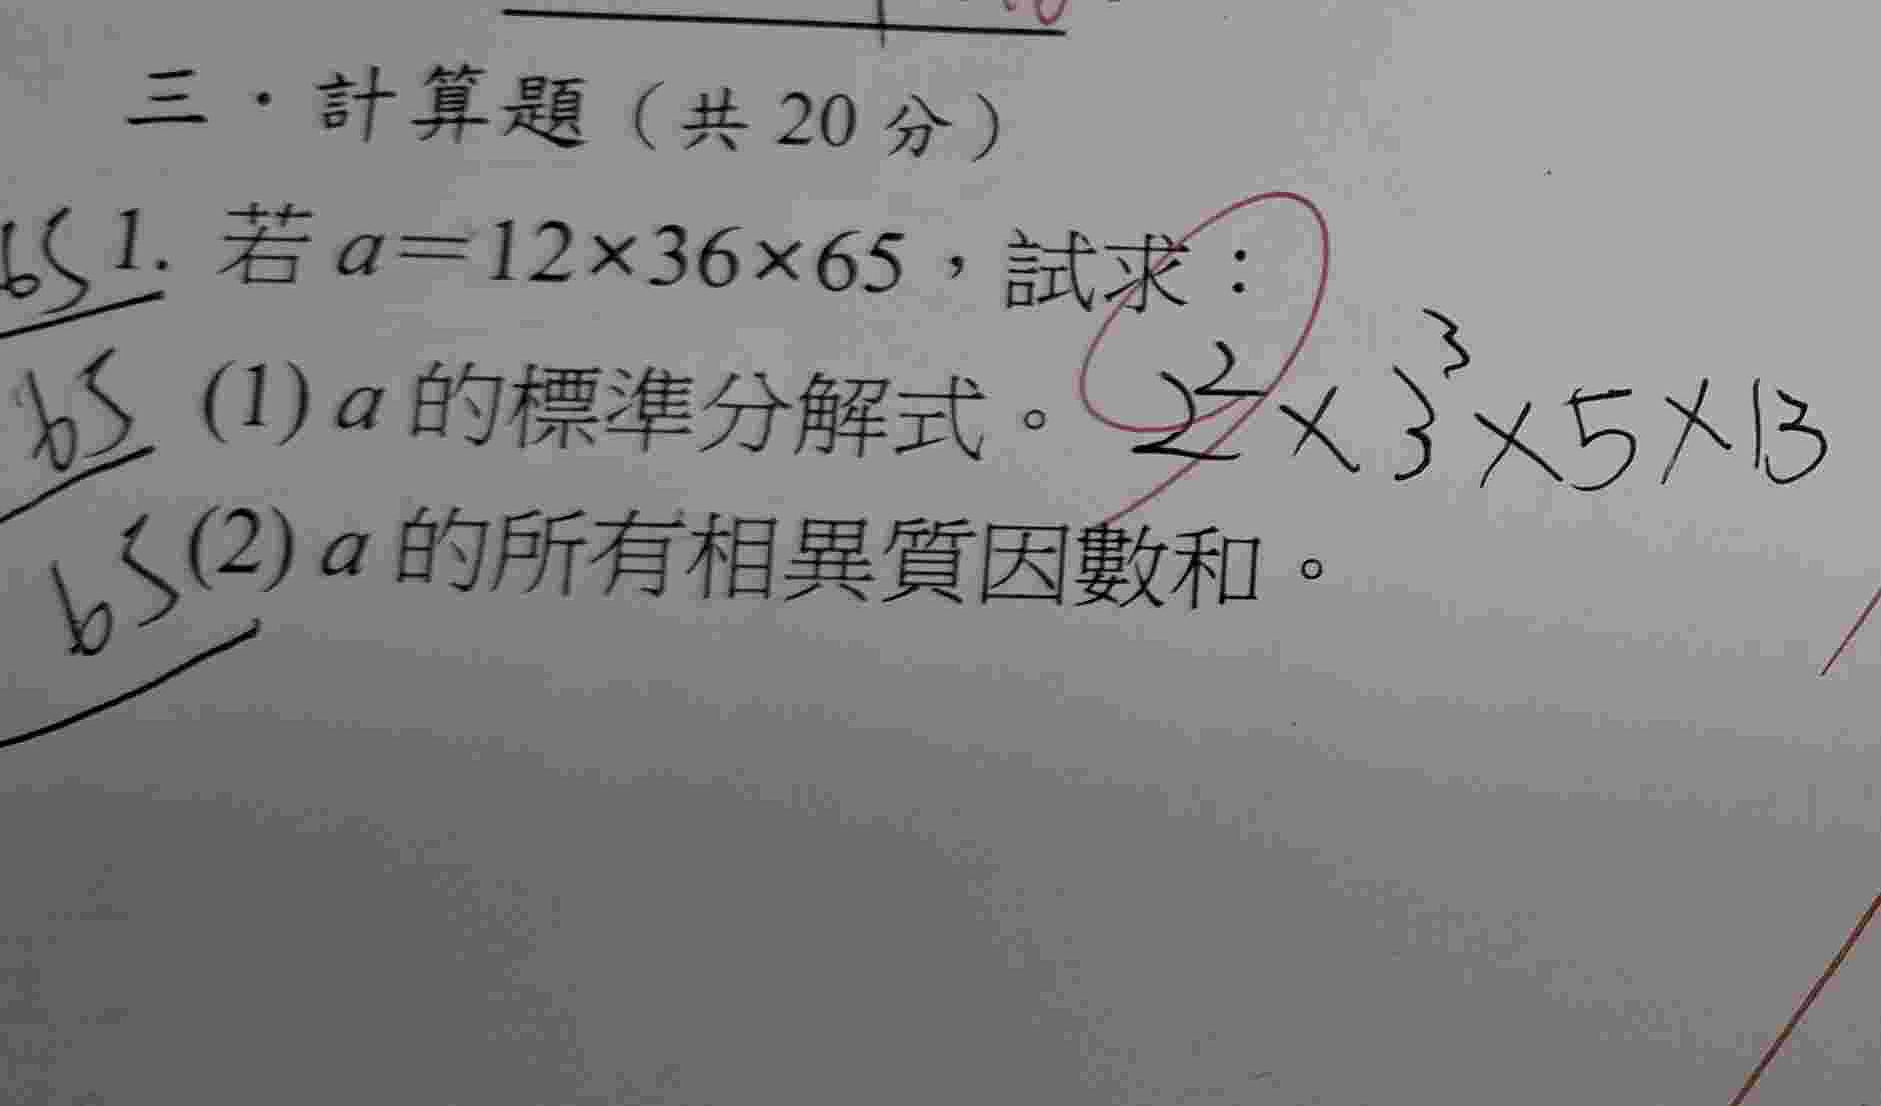 三．計算題（共 20 分）
bS 1. 若 a＝12×36×65，試求：
bS (1) a 的標準分解式。 2² × 3³ × 5 × 13
bS (2) a 的所有相異質因數和。